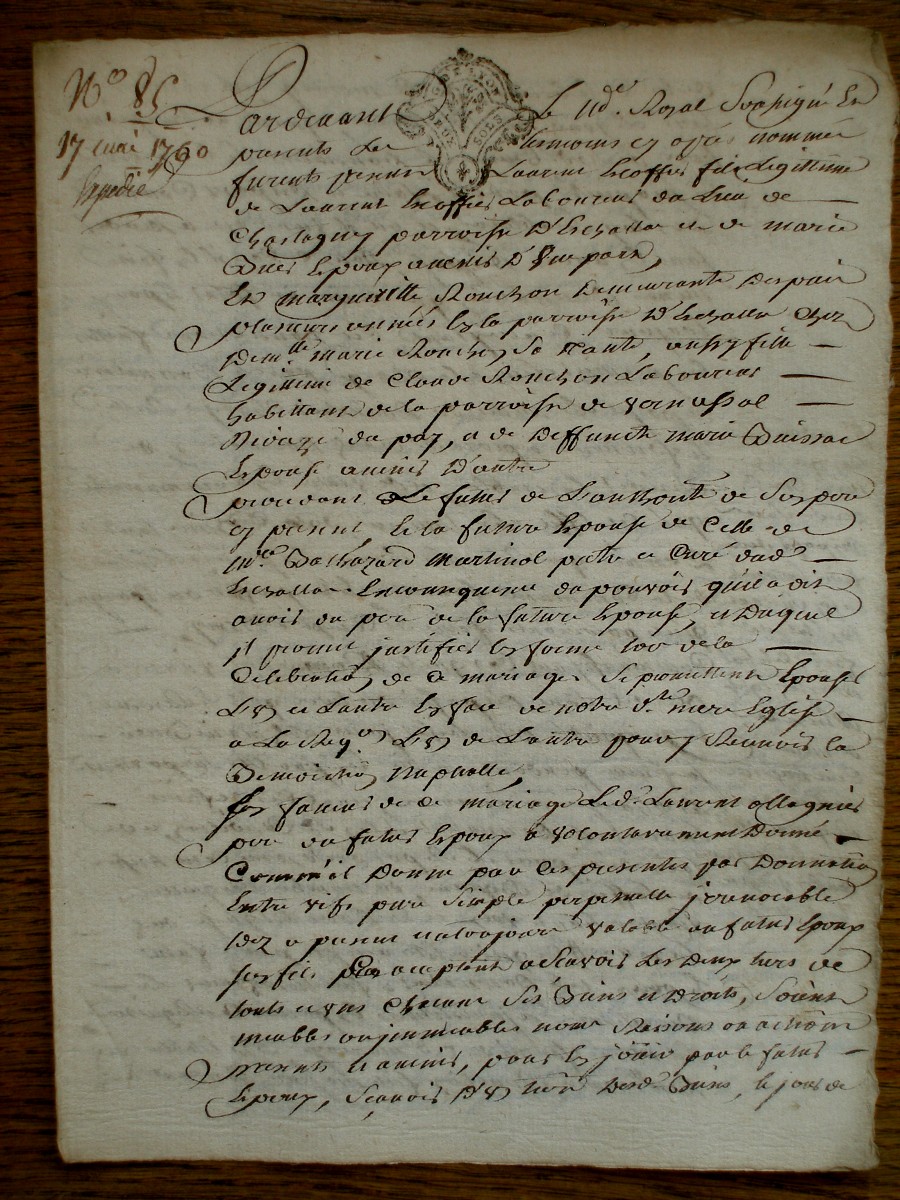 N° 85
17 mai 1760
Expedié
GEN DE LYON
SOLS
Pardevant Le Nore Royal Soussigné Et
presents Les temoins cy apres nommés
furent presents Laurent fils Legitime
de Laurent Laboureur du Lieu de
Chassagny parroisse D'Echalla et de marie
Epoux a venir D'Une part,
Et margueritte Ronchon Demeurante Depuis
plusieurs années En la parroisse D'Echalla Chez
Demlle marie Ronchon Sa tante, aussy fille
Legitime de Claude Ronchon Laboureur
habittant de la parroisse de vernassal
du pay, et de Deffuncte marie Buissac
Epouse a venir D'autre
procedant Le futur de L'authorité de Son pere
cy present, Et la future Epouse de Celle de
mre Balthazard Martinol pretre et Curé dud
Echalla En Consequence du pouvoir qu'il a dit
avoir du pere de la future Epouse, et Duquel
il promet justifier En forme lors de la
Celebration de Ce mariage, Se promettent Epouser
L'un et Lautre En face de notre Ste mere Eglise
a La Reqon L'un de Lautre pour y Recevoir la
Benediction Nuptialle,
En faveur de Ce mariage Led Laurent
pere du futur Epoux a volontairement Donné
Comme il Donne par Ces presentes par Donnation
Entre vifs pure Simple perpetuelle jrrevocable
Dez a present et a toujours valable au futur Epoux
Son fils acceptant a Scavoir Les Deux tiers de
touts et uns Chacuns Ses Biens et Droits, Soient
meubles ou jmmeubles noms Raisons ou actions
presents et a venir, pour En joüir par le futur
Epoux, Scavoir D'un tiers Desd Biens, le jour de